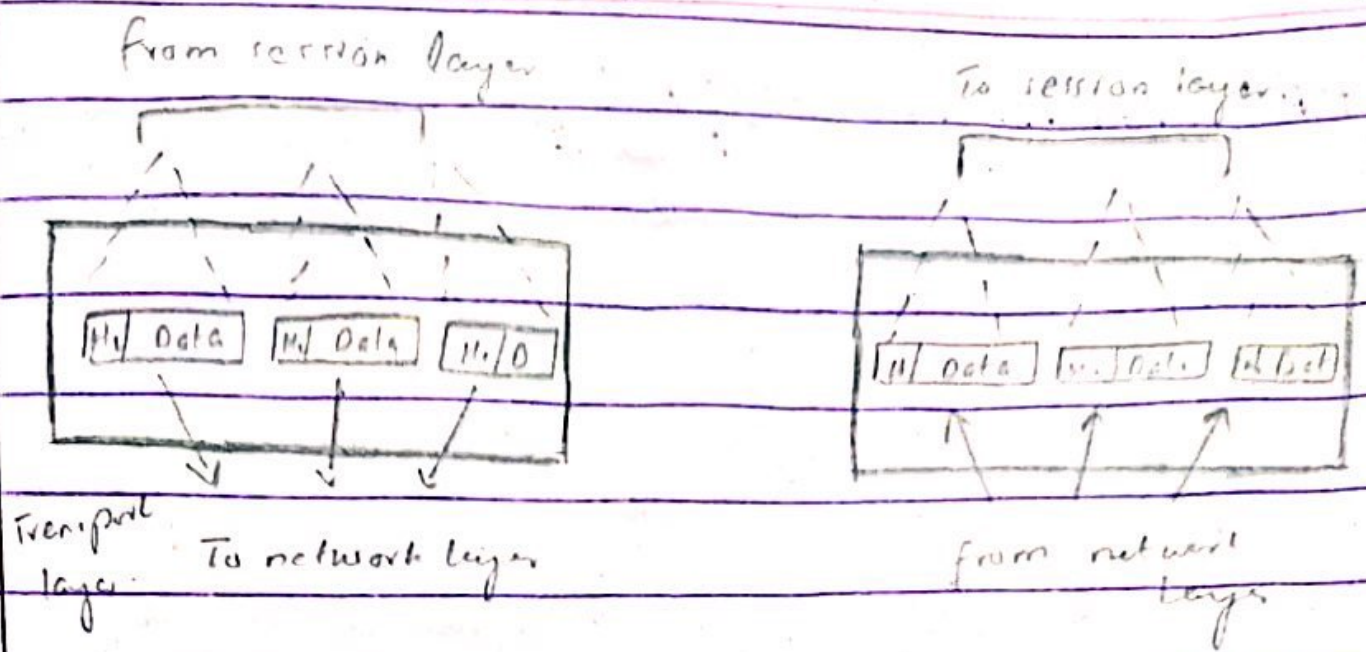 From session layer
To session layer
H1 Data H1 Data H1 D
H Data H1 Data
Transport
layer
To network layer
from network
layer